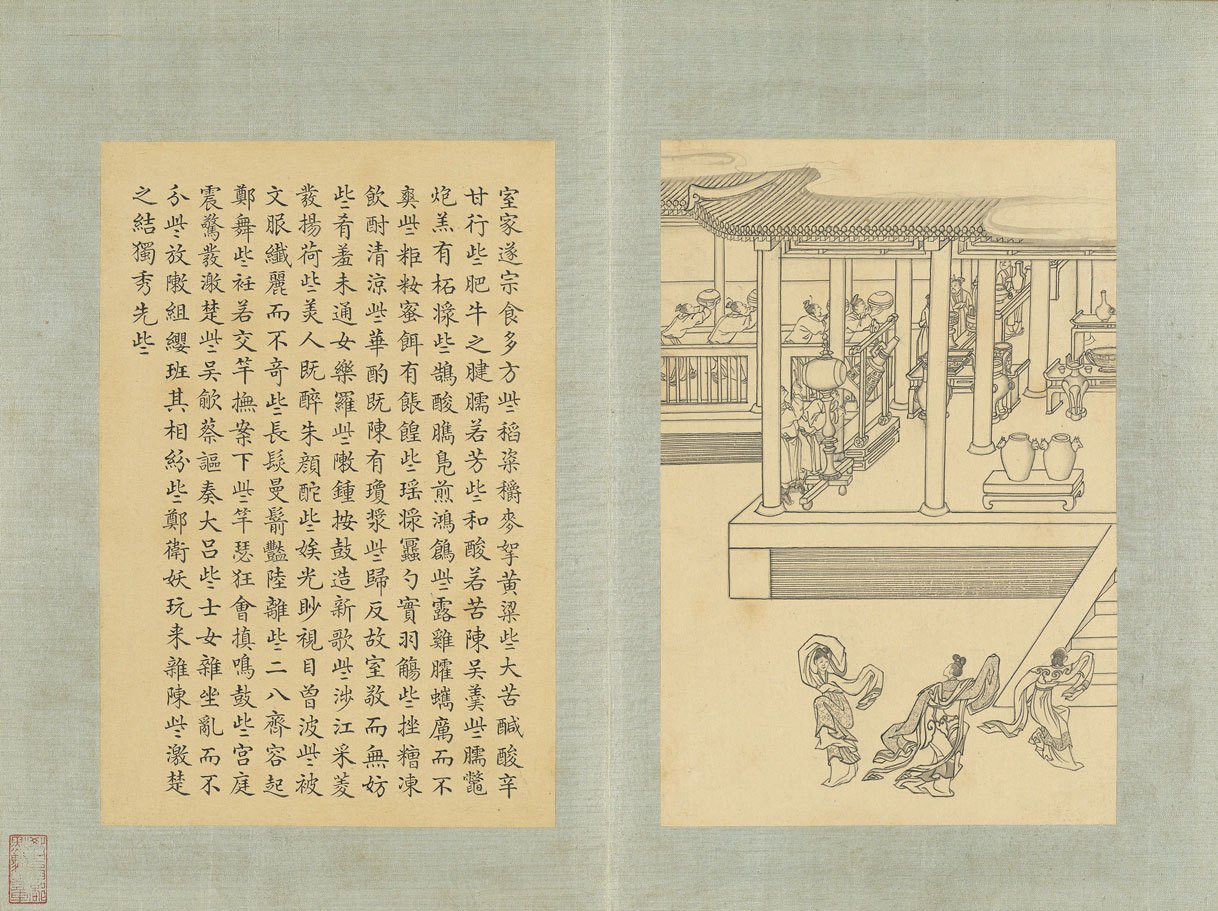 室家遂宗食多方些稻粢穱麥挐黃粱些大苦醎酸辛
甘行些肥牛之腱臑若芳些和酸若苦陳吳羹些臑鼈
炮羔有柘漿些鵠酸臇鳧煎鴻鶬些露雞臛蠵厲而不
爽些粔籹蜜餌有餦餭些瑤漿羃勺實羽觴些挫糟凍
飲酎清涼些華酌既陳有瓊漿些歸反故室敬而無妨
些肴羞未通女樂羅些敶鍾按鼓造新歌些涉江采菱
發揚荷些美人既醉朱顏酡些娭光眇視目曾波些被
文服纖麗而不奇些長髮曼鬋豔陸離些二八齊容起
鄭舞些衽若交竿撫案下些竽瑟狂會搷鳴鼓些宮庭
震驚發激楚些吳歈蔡謳奏大呂些士女雜坐亂而不
分些放敶組纓班其相紛些鄭衛妖玩來雜陳些激楚
之結獨秀先些